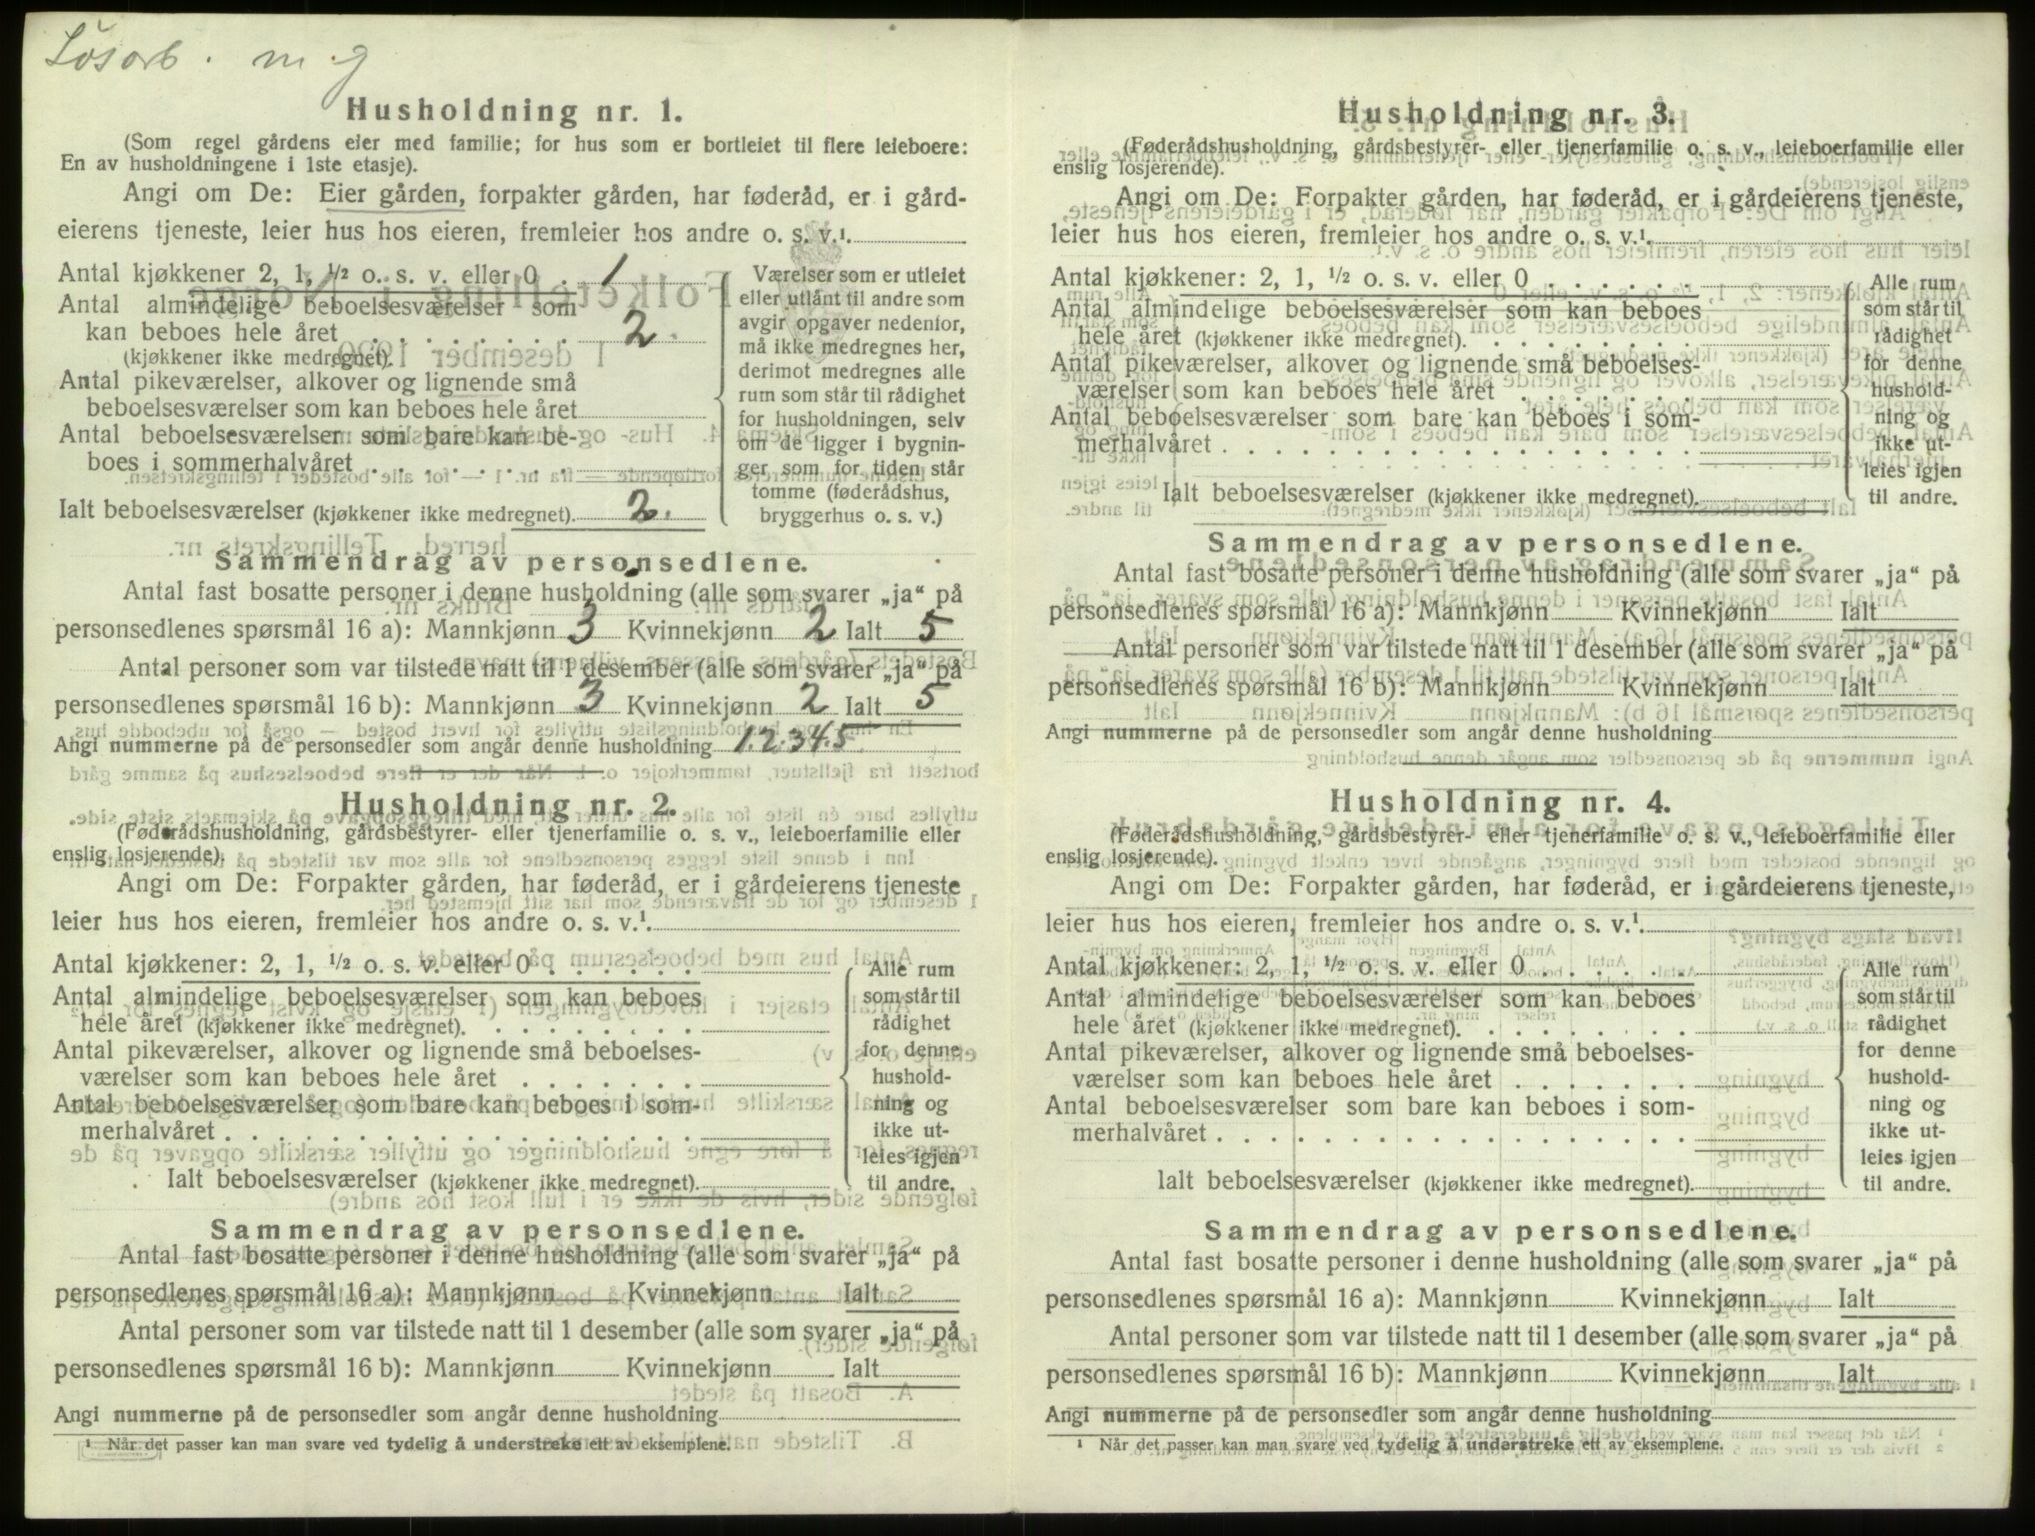 Løsarb. m. g
Husholdning nr. 1.
(Som regel gårdens eier med familie; for hus som er bortleiet til flere leieboere:
En av husholdningene i 1ste etasje).
Angi om De: Eier gården, forpakter gården, har føderåd, er i gård-
eierens tjeneste, leier hus hos eieren, fremleier hos andre o. s. v.¹.
Antal kjøkkener 2, 1, ½ o. s. v. eller 0 . 1
Antal almindelige beboelsesværelser som
kan beboes hele året . . . . . . . . 2.
(kjøkkener ikke medregnet).
Antal pikeværelser, alkover og lignende små
beboelsesværelser som kan beboes hele året
Antal beboelsesværelser som bare kan be-
boes i sommerhalvåret . . . . . . . .
Ialt beboelsesværelser (kjøkkener ikke medregnet). 2.
Værelser som er utleiet
eller utlånt til andre som
avgir opgaver nedenfor,
må ikke medregnes her,
derimot medregnes alle
rum som står til rådighet
for husholdningen, selv
om de ligger i bygnin-
ger som for tiden står
tomme (føderådshus,
bryggerhus o. s. v.)
Sammendrag av personsedlene.
Antal fast bosatte personer i denne husholdning (alle som svarer „ja“ på
personsedlenes spørsmål 16 a): Mannkjønn 3 Kvinnekjønn 2 Ialt 5
Antal personer som var tilstede natt til 1 desember (alle som svarer „ja“ på
personsedlenes spørsmål 16 b): Mannkjønn 3 Kvinnekjønn 2 Ialt 5
Angi nummerne på de personsedler som angår denne husholdning 1.2.3.4.5.
Husholdning nr. 2.
(Føderådshusholdning, gårdsbestyrer- eller tjenerfamilie o. s. v., leieboerfamilie eller
enslig losjerende).
Angi om De: Forpakter gården, har føderåd, er i gårdeierens tjeneste
leier hus hos eieren, fremleier hos andre o. s. v.¹.
Antal kjøkkener: 2, 1, ½ o. s. v. eller 0 . . . . . .
Antal almindelige beboelsesværelser som kan beboes
hele året (kjøkkener ikke medregnet). . . . . . . . .
Antal pikeværelser, alkover og lignende små beboelses-
værelser som kan beboes hele året . . . . . . .
Antal beboelsesværelser som bare kan beboes i som-
merhalvåret . . . . . . . . . . . . . . . . . .
Ialt beboelsesværelser (kjøkkener ikke medregnet).
Alle rum
som står til
rådighet
for denne
hushold-
ning og
ikke ut-
leies igjen
til andre.
Sammendrag av personsedlene.
Antal fast bosatte personer i denne husholdning (alle som svarer „ja“ på
personsedlenes spørsmål 16 a): Mannkjønn Kvinnekjønn Ialt
Antal personer som var tilstede natt til 1 desember (alle som svarer „ja“ på
personsedlenes spørsmål 16 b): Mannkjønn Kvinnekjønn Ialt
Angi nummerne på de personsedler som angår denne husholdning
¹ Når det passer kan man svare ved tydelig å understreke ett av eksemplene.
Husholdning nr. 3.
(Føderådshusholdning, gårdsbestyrer- eller tjenerfamilie o. s. v., leieboerfamilie eller
enslig losjerende).
Angi om De: Forpakter gården, har føderåd, er i gårdeierens tjeneste,
leier hus hos eieren, fremleier hos andre o. s. v.¹.
Antal kjøkkener: 2, 1, ½ o. s. v. eller 0 . . . . . .
Antal almindelige beboelsesværelser som kan beboes
hele året (kjøkkener ikke medregnet). . . . . . . . .
Antal pikeværelser, alkover og lignende små beboelses-
værelser som kan beboes hele året . . . . . . .
Antal beboelsesværelser som bare kan beboes i som-
merhalvåret . . . . . . . . . . . . . . . . . .
Ialt beboelsesværelser (kjøkkener ikke medregnet).
Alle rum
som står til
rådighet
for denne
hushold-
ning og
ikke ut-
leies igjen
til andre.
Sammendrag av personsedlene.
Antal fast bosatte personer i denne husholdning (alle som svarer „ja“ på
personsedlenes spørsmål 16 a): Mannkjønn Kvinnekjønn Ialt
Antal personer som var tilstede natt til 1 desember (alle som svarer „ja“ på
personsedlenes spørsmål 16 b): Mannkjønn Kvinnekjønn Ialt
Angi nummerne på de personsedler som angår denne husholdning
Husholdning nr. 4.
(Føderådshusholdning, gårdsbestyrer- eller tjenerfamilie o. s. v., leieboerfamilie eller
enslig losjerende).
Angi om De: Forpakter gården, har føderåd, er i gårdeierens tjeneste,
leier hus hos eieren, fremleier hos andre o. s. v.¹.
Antal kjøkkener: 2, 1, ½ o. s. v. eller 0 . . . . . .
Antal almindelige beboelsesværelser som kan beboes
hele året (kjøkkener ikke medregnet). . . . . . . . .
Antal pikeværelser, alkover og lignende små beboelses-
værelser som kan beboes hele året . . . . . . .
Antal beboelsesværelser som bare kan beboes i som-
merhalvåret . . . . . . . . . . . . . . . . . .
Ialt beboelsesværelser (kjøkkener ikke medregnet).
Alle rum
som står til
rådighet
for denne
hushold-
ning og
ikke ut-
leies igjen
til andre.
Sammendrag av personsedlene.
Antal fast bosatte personer i denne husholdning (alle som svarer „ja“ på
personsedlenes spørsmål 16 a): Mannkjønn Kvinnekjønn Ialt
Antal personer som var tilstede natt til 1 desember (alle som svarer „ja“ på
personsedlenes spørsmål 16 b): Mannkjønn Kvinnekjønn Ialt
Angi nummerne på de personsedler som angår denne husholdning
¹ Når det passer kan man svare ved tydelig å understreke ett av eksemplene.